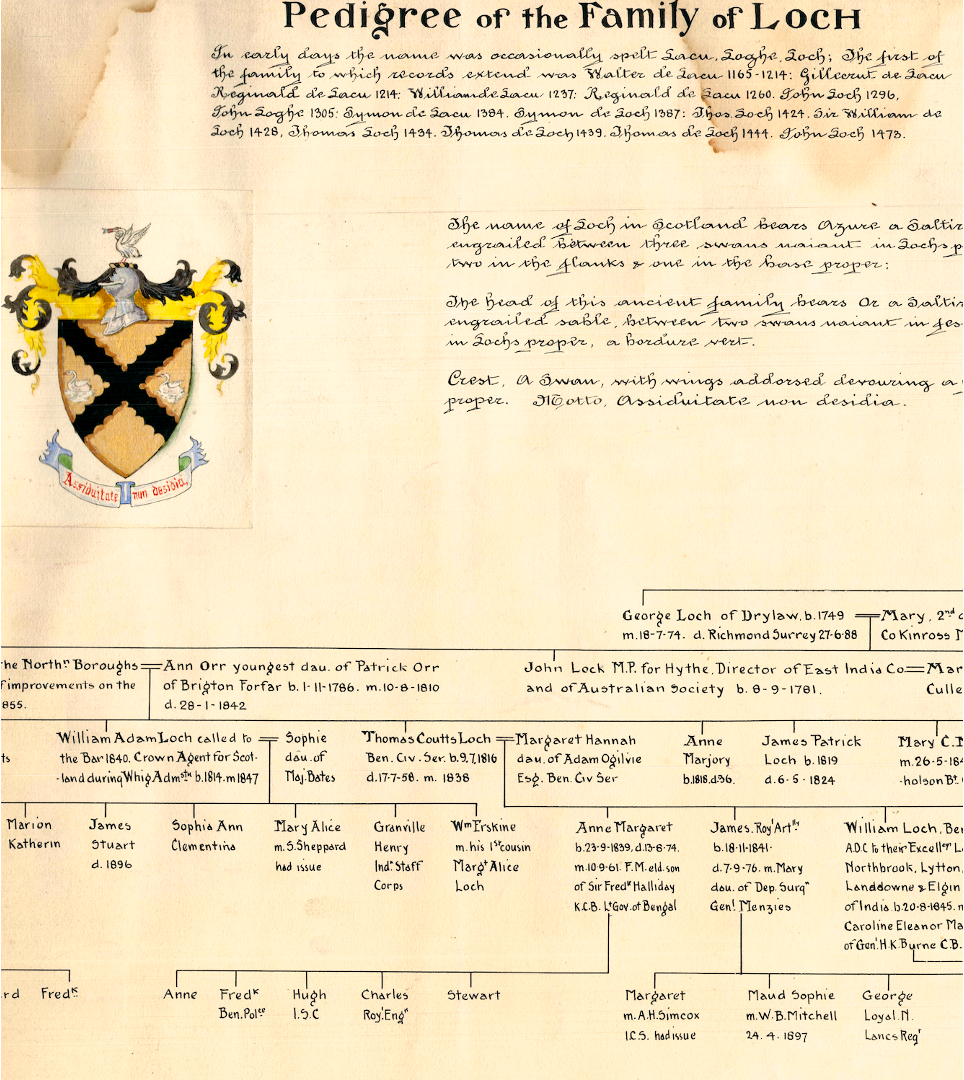 Pedigree of the Family of LOCH
In early days the name was occasionally spelt Lacu, Loghe, Loch; The first of
the family to which records extend was Walter de Lacu 1165-1214: Gillecrut de Lacu
Reginald de Lacu 1214: William de Lacu 1237: Reginald de Lacu 1260. John Loch 1296,
John Loghe 1305: Symon de Lacu 1384. Symon de Loch 1387: Thos. Loch 1424. Sir William de
Loch 1428, Thomas Loch 1434. Thomas de Loch 1439. Thomas de Loch 1444. John Loch 1473.
The name of Loch in Scotland bears Azure a Saltir
engrailed between three swans naiant in Lochs p
two in the flanks & one in the base proper:
The head of this ancient family bears Or a Saltir
engrailed sable, between two swans naiant in fes
in Lochs proper, a bordure vert.
Crest, A Swan, with wings addorsed devouring a
proper. Motto, Assiduitate non desidia.
Assiduitate non desidia,
George Loch of Drylaw, b. 1749 Mary, 2nd d
m. 18-7-74. d. Richmond Surrey 27-6-88 Co Kinross M
he Northn Boroughs Ann Orr youngest dau. of Patrick Orr John Lock M.P. for Hythe, Director of East India Co. Mar
f improvements on the of Brigton Forfar b. 1-11-1786. m. 10-8-1810 and of Australian Society b. 8-9-1781. Culle
855. d. 28-1-1842
William Adam Loch called to Sophie Thomas Coutts Loch Margaret Hannah Anne James Patrick Mary C.M
ts the Bar 1840. Crown Agent for Scot- dau. of Ben. Civ. Ser. b. 9.7.1816 dau. of Adam Ogilvie Marjory Loch b. 1819 m. 26-5-184
-land during Whig Admstn b. 1814. m 1847 Maj. Bates d. 17-7-58. m. 1838 Esq. Ben. Civ Ser b. 1818. d 36. d. 6-5-1824 -holson Bt. C
Marion James Sophia Ann Mary Alice Granville Wm Erskine Anne Margaret James. Royl Arty William Loch, Ben
Katherin Stuart Clementina m. S. Sheppard Henry m. his 1st cousin b. 23-9-1839, d. 13-8-74. b. 18-11-1841. A.D.C to their Excellcr Lo
d. 1896 had issue Indn Staff Margt Alice m. 10-9-61. F.M. eld. son d. 7-9-76. m. Mary Northbrook, Lytton,
Corps Loch of Sir Fredk Halliday dau. of Dep. Surgn Landdowne & Elgin
K.C.B. Lt Gov. of Bengal Genl Menzies of India. b. 20-8-1845. m
Caroline Eleanor Ma
of Genl. H.K. Burne C.B.
rd Fredk Anne Fredk Hugh Charles Stewart Margaret Maud Sophie George
Ben. Polce I.S.C Royl Engrs m. A.H. Simcox m. W.B. Mitchell Loyal. N.
I.C.S. had issue 24. 4. 1897 Lancs Regt